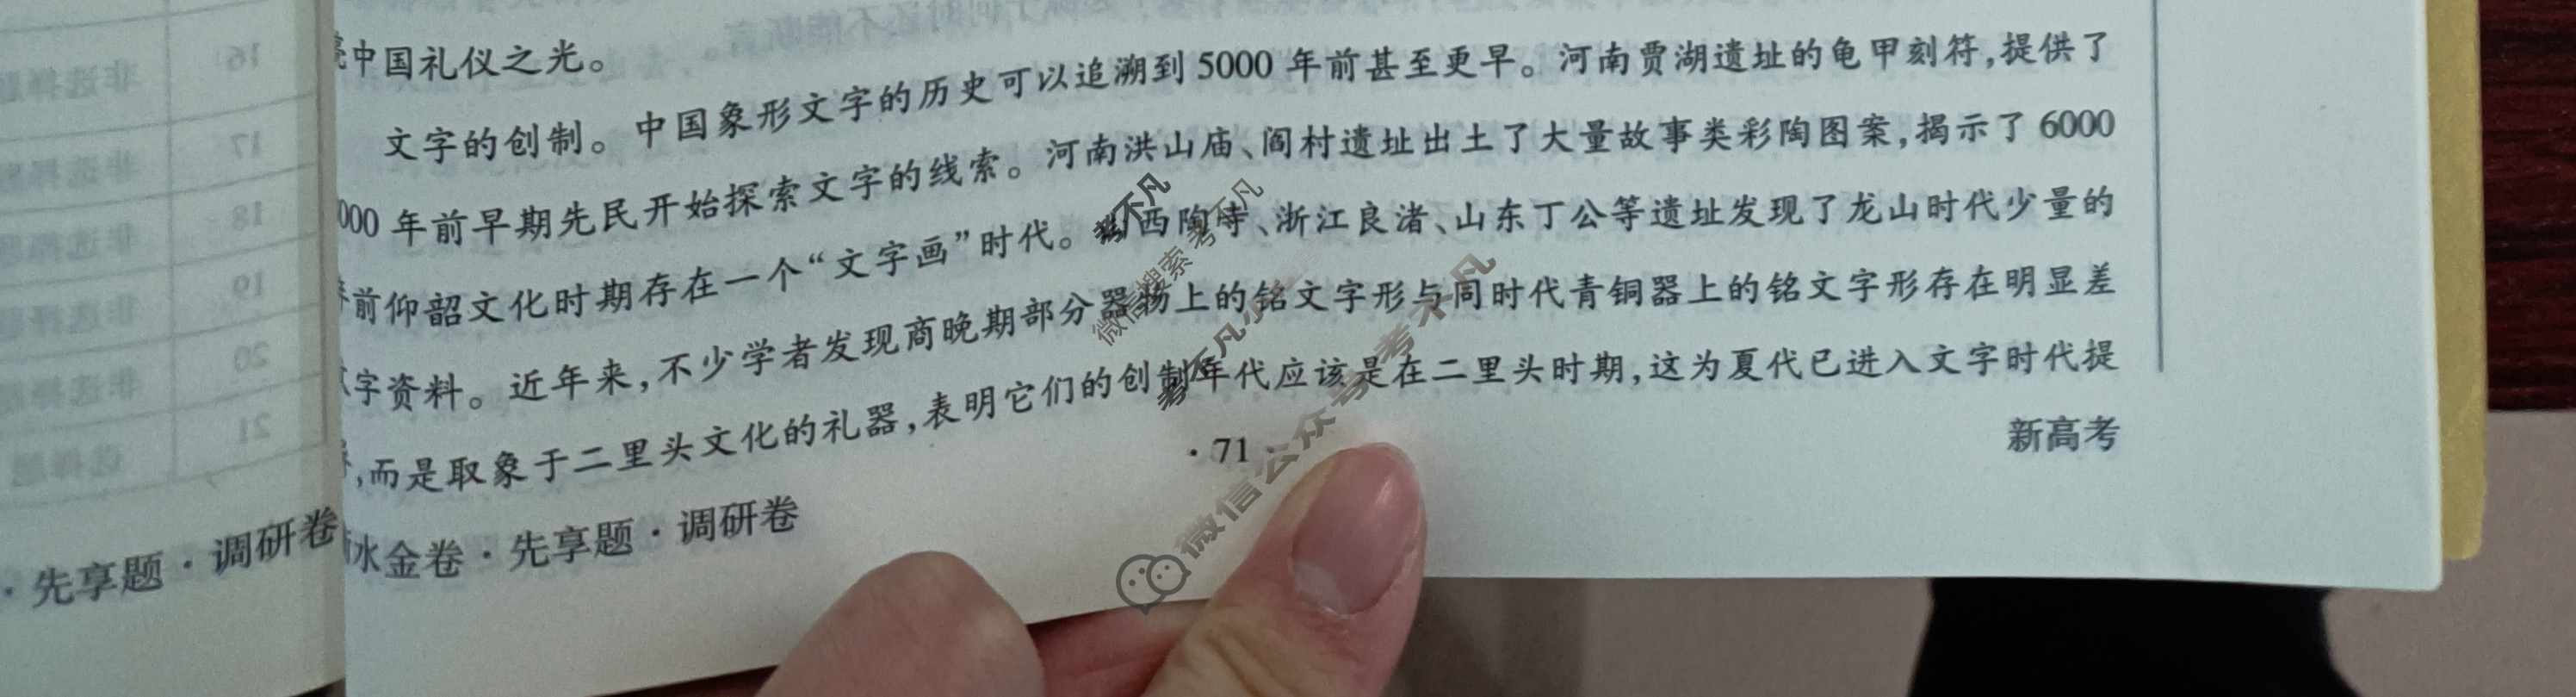 中国礼仪之光。
文字的创制。中国象形文字的历史可以追溯到5000年前甚至更早。河南贾湖遗址的龟甲刻符,提供了
000年前早期先民开始探索文字的线索。河南洪山庙、阎村遗址出土了大量故事类彩陶图案,揭示了6000
前仰韶文化时期存在一个“文字画”时代。山西陶寺、浙江良渚、山东丁公等遗址发现了龙山时代少量的
字资料。近年来,不少学者发现商晚期部分器物上的铭文字形与同时代青铜器上的铭文字形存在明显差
,而是取象于二里头文化的礼器,表明它们的创制年代应该是在二里头时期,这为夏代已进入文字时代提
·71·
新高考
水金卷·先享题·调研卷
·先享题·调研卷
考不凡
微信搜索考不凡
考不凡
微信公众号考不凡
16
17
18
19
20
21
非选择题
非选择题
非选择题
非选择题
非选择题
选择题